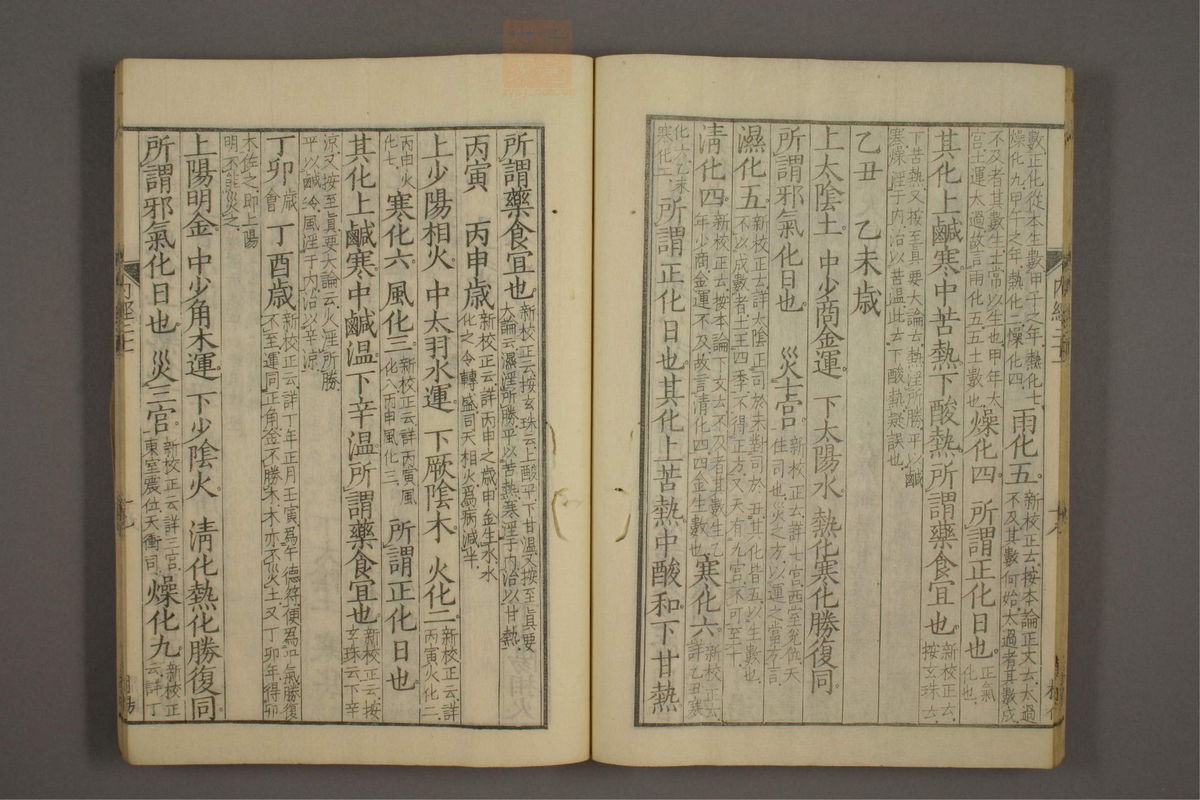 數正化從本生數甲子之年熱化七
燥化九甲午之年熱化二燥化四
雨化五
新校正云按本論正文云太過
不及其數何始太過者其數成
不及者其數生土常以生也甲年太
宮土運太過故言雨化五五土數也
燥化四 所謂正化日也
正氣
化也
其化上鹹寒中苦熱下酸熱所謂藥食宜也
新校正云
按玄珠云
下苦熱又按至真要大論云熱淫所勝平以鹹
寒燥淫于内治以苦温此云下酸熱疑誤也
乙丑 乙未歲
上太陰土 中少商金運 下太陽水 熱化寒化勝復同
所謂邪氣化日也 災七宮
新校正云詳七宮西室兌位天
柱司也災之方以運之當方言
濕化五
新校正云詳太陰正司於未對司於丑其化皆五以生數也
不以成數者土王四季不得正方又天有九宮不可至十
清化四
新校正云按本論下文云不及者其數生乙
年少商金運不及故言清化四四金生數也
寒化六
新校正云
詳乙丑寒
化六乙未
寒化一
所謂正化日也其化上苦熱中酸和下甘熱
所謂藥食宜也
新校正云按玄珠云上酸平下甘温又按至真要
大論云濕淫所勝平以苦熱寒淫于内治以甘熱
丙寅 丙申歲
新校正云詳丙申之歲申金生水水
化之令轉盛司天相火為病減半
上少陽相火 中太羽水運 下厥陰木 火化二
新校正云詳
丙寅火化二
丙申火
化七
寒化六 風化三
新校正云詳丙寅風
化八丙申風化三
所謂正化日也
其化上鹹寒中鹹温下辛温所謂藥食宜也
新校正云按
玄珠云下辛
涼又按至真要大論云火淫所勝
平以鹹冷風淫于内治以辛涼
丁卯
歲
會
丁酉歲
新校正云詳丁年正月壬寅為午德符便為平氣勝復
不至運同正角金不勝木木亦不災土又丁卯年得卯
木佐之即上陽
明不能災之
上陽明金 中少角木運 下少陰火 清化熱化勝復同
所謂邪氣化日也 災三宮
新校正云詳三宮
東室震位天衝司
燥化九
新校正
云詳丁